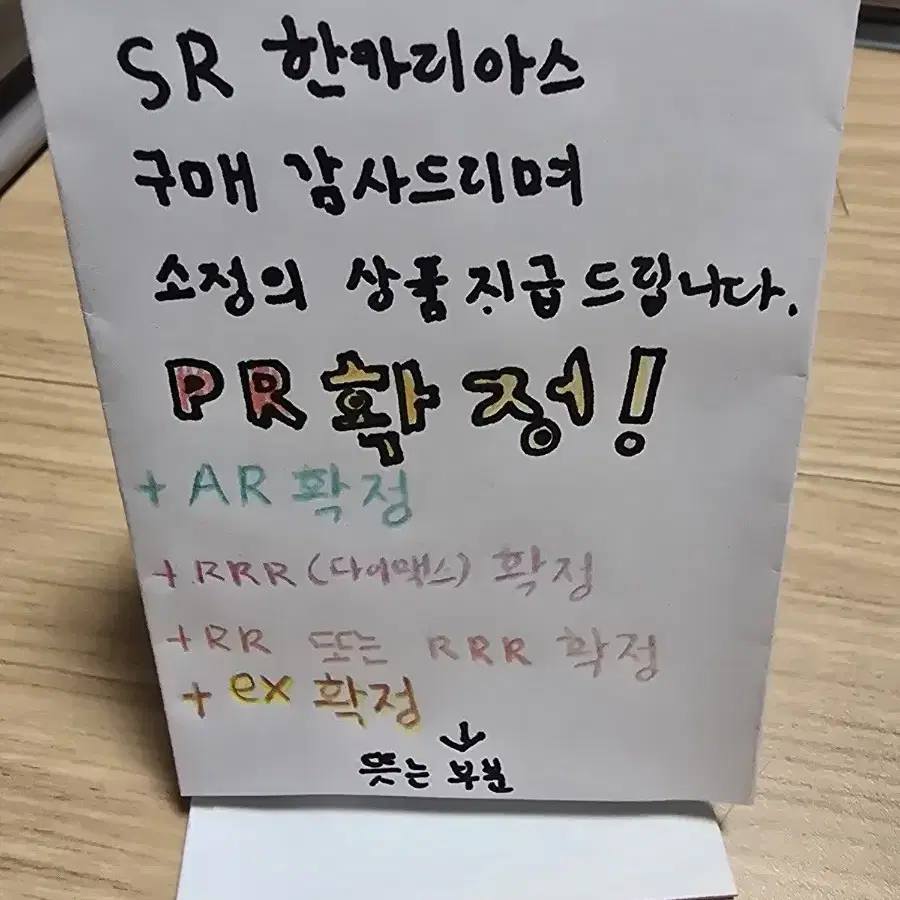 SR 한카리아스
구매 감사드리며
소정의 상품 지급드립니다.
PR 확정!
+ AR 확정
+ RRR (다이맥스) 확정
+ RR 또는 RRR 확정
+ ex 확정
↓
뜯는 부분